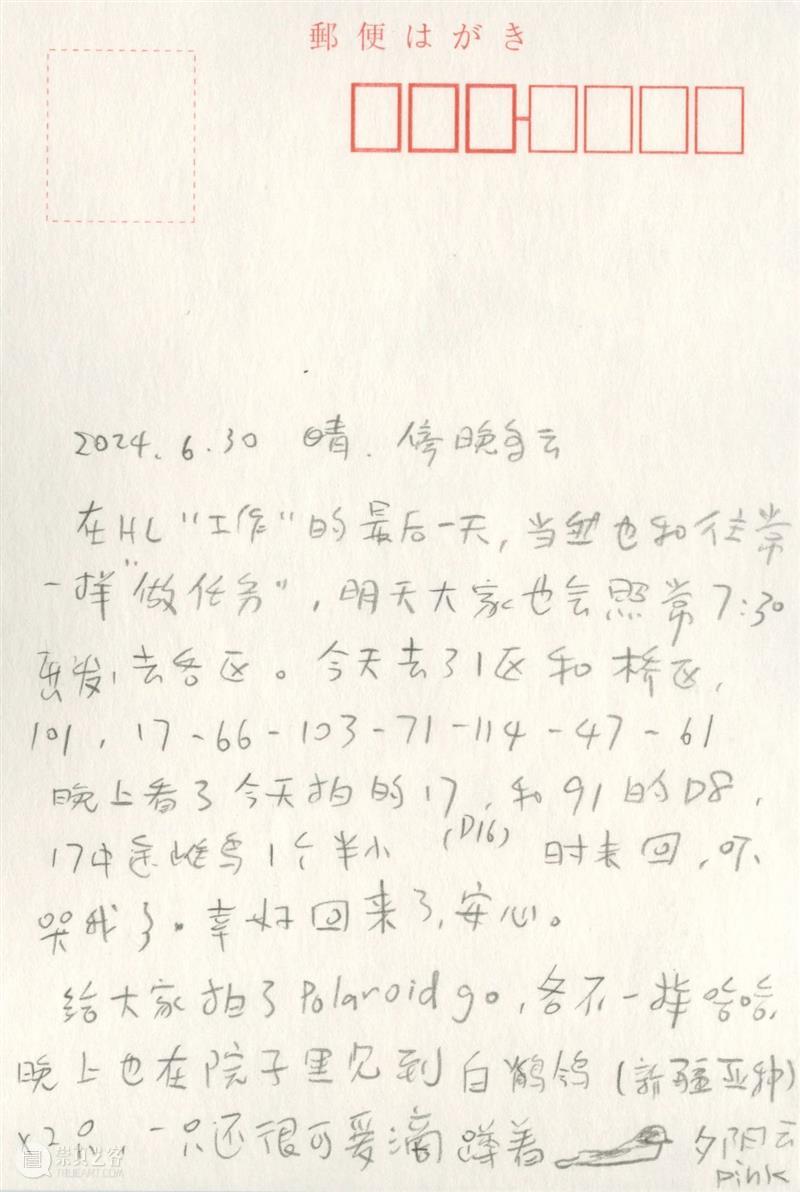 郵便はがき
2024.6.30 晴. 傍晚多云
在HL“工作”的最后一天,当然也和往常
一样“做任务”,明天大家也会照常7:30
出发,去各区。今天去了1区和桥区,
101,17-66-103-71-114-47-61
晚上看了今天拍的17,和91的D8,
17中途雌鸟1个半小(D16)时未回,吓
哭我了。幸好回来了,安心。
给大家拍了Polaroid go,各不一样哈哈,
晚上也在院子里见到白鹡鸰(新疆亚种)
x2只,一只还很可爱滴蹲着 夕阳云
pink
崇真艺客
TRUEART.COM